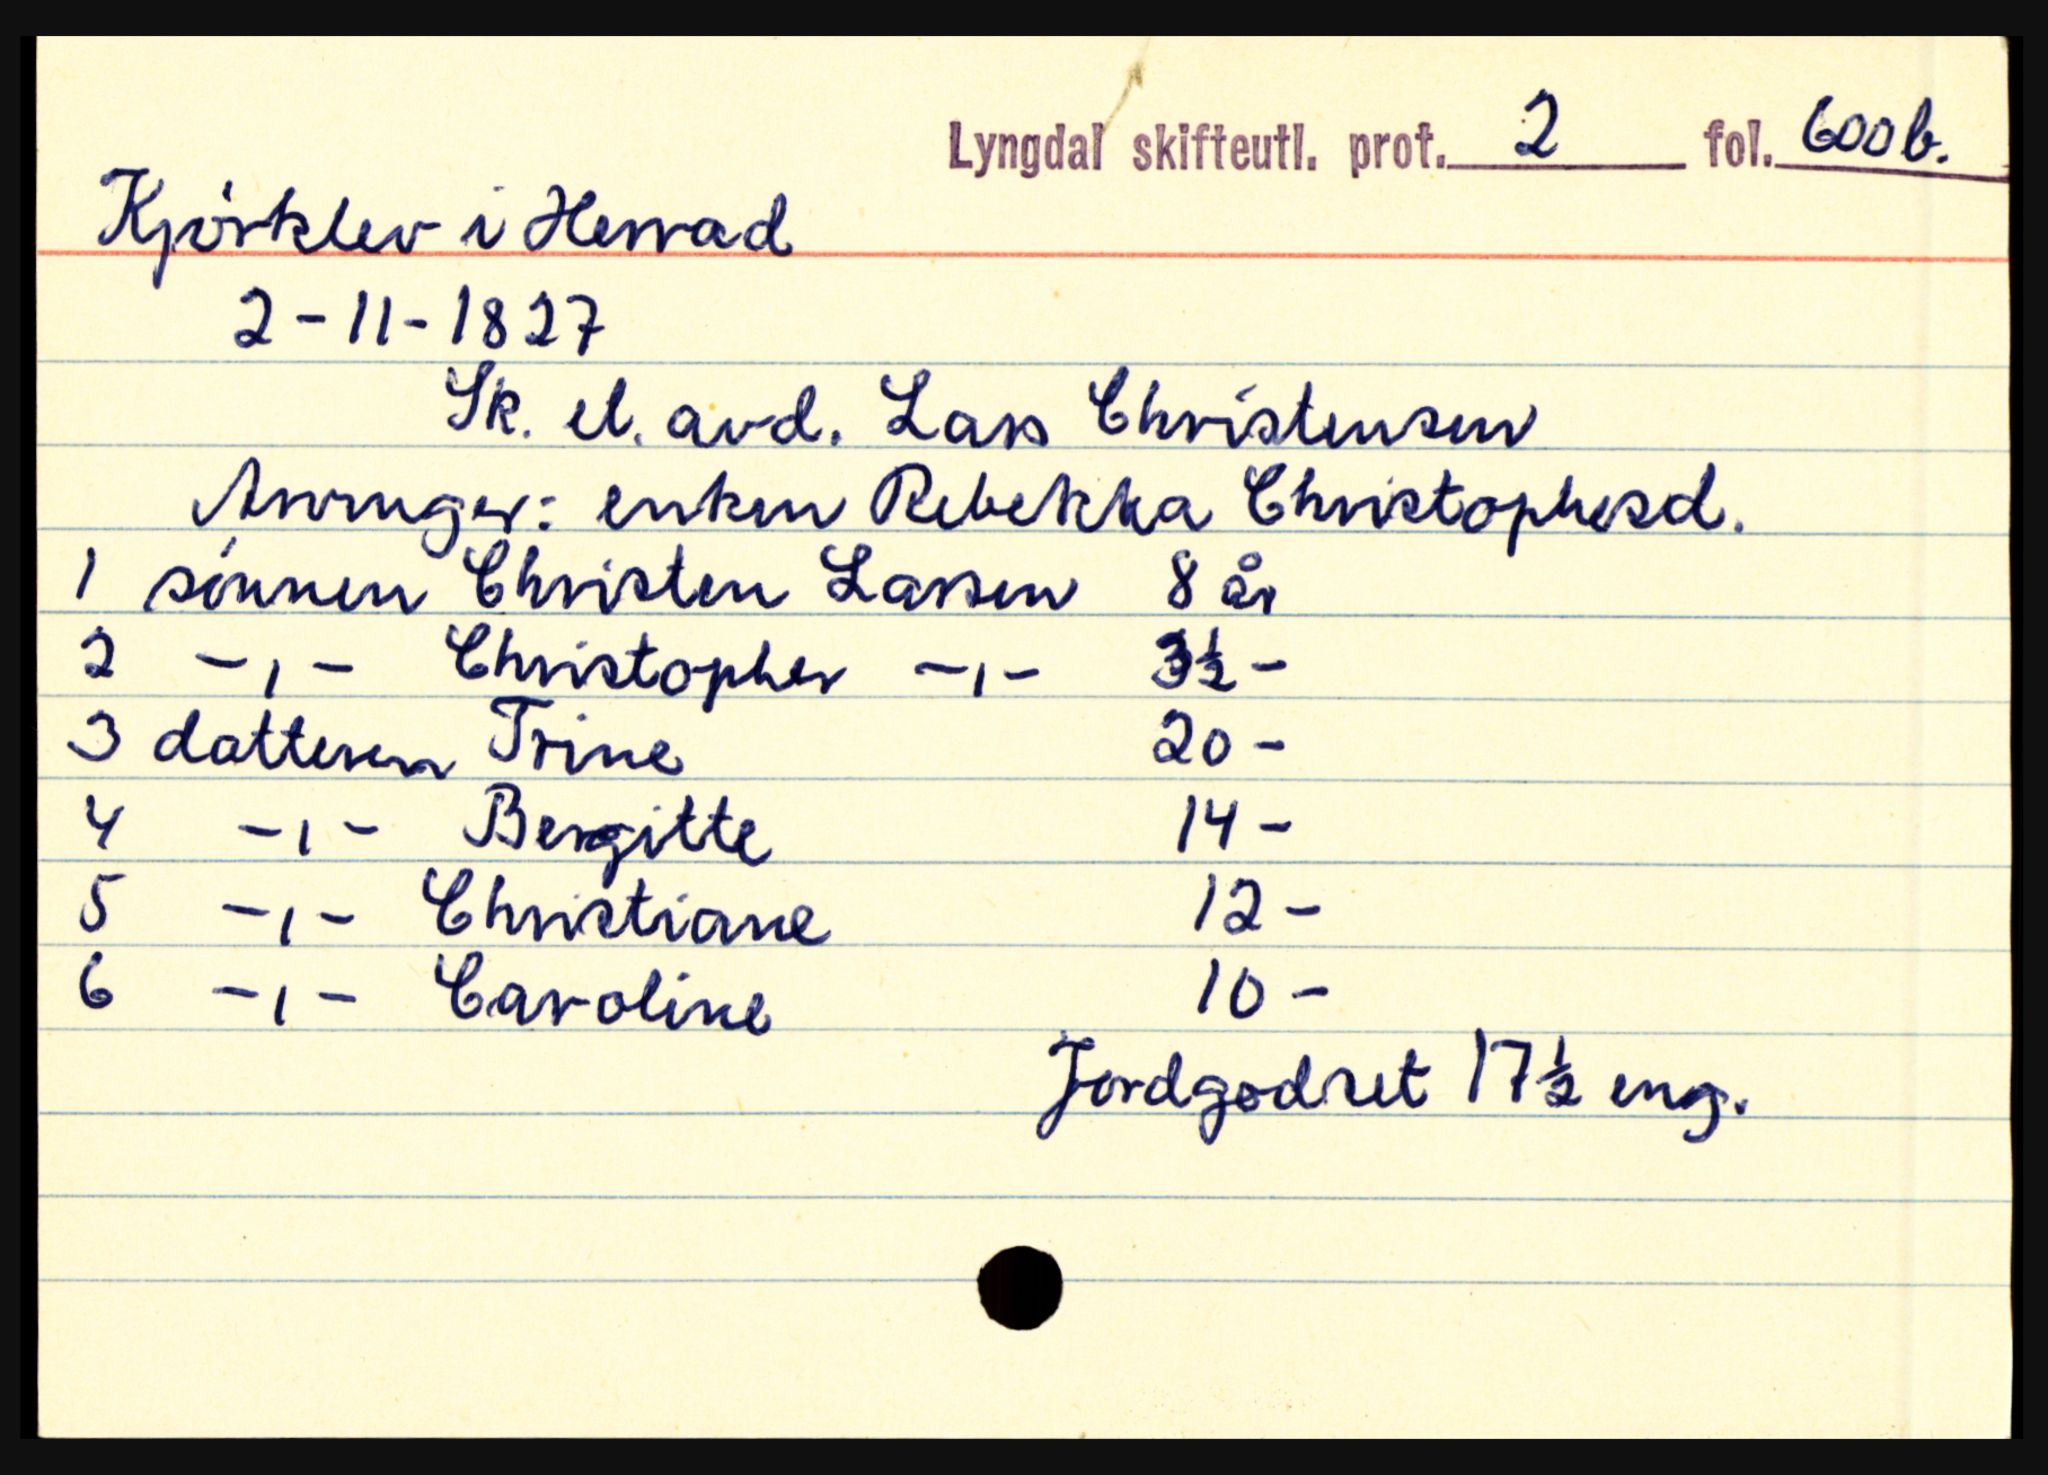 Lyngdal skifteutl. prot. 2 fol. 600b.
Kjørklev i Herrad
2-11-1827
Sk. et. avd. Lars Christensen
Arvinger: enken Rebekka Christophersd.
1 sønnen Christen Larsen 8 år
2 -,- Christopher -,- 3½ -
3 datteren Trine 20 -
4 -,- Bergitte 14 -
5 -,- Christiane 12 -
6 -,- Caroline 10 -
Jordgodset 17½ eng.